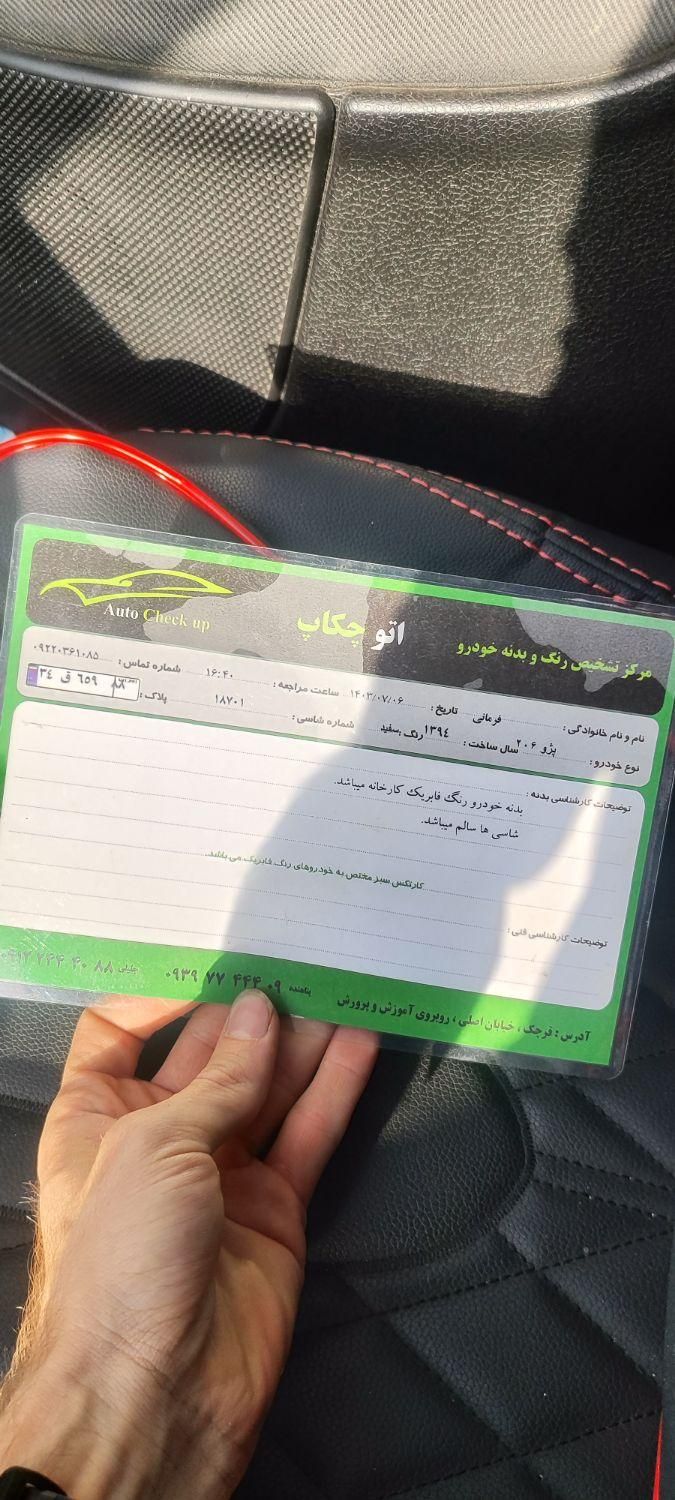 مرکز تشخیص رنگ و بدنه خودرو
اتو چکاپ
Auto Check up
نام و نام خانوادگی : فرمانی تاریخ : ۱۴۰۳/۰۷/۰۶ ساعت مراجعه : ۱۶:۴۰ شماره تماس : ۰۹۲۲۰۳۶۱۰۸۵
نوع خودرو : پژو ۲۰۶ سال ساخت : ۱۳۹۴ رنگ : سفید شماره شاسی : ۱۸۷۰۱ پلاک : ۳٤ ق ٦٥٩ ۸۸
توضیحات کارشناسی بدنه :
بدنه خودرو رنگ فابریک کارخانه میباشد.
شاسی ها سالم میباشد.
کارتکس سبز مختص به خودروهای رنگ فابریک می باشد.
توضیحات کارشناسی فنی :
آدرس : قرچک ، خیابان اصلی ، روبروی آموزش و پرورش
پناهنده ۰۹۳۹ ۷۷ ۴۴۴ ۰۹
جلیلی ۰۹۱۲ ۲۴۴ ۴۰ ۸۸